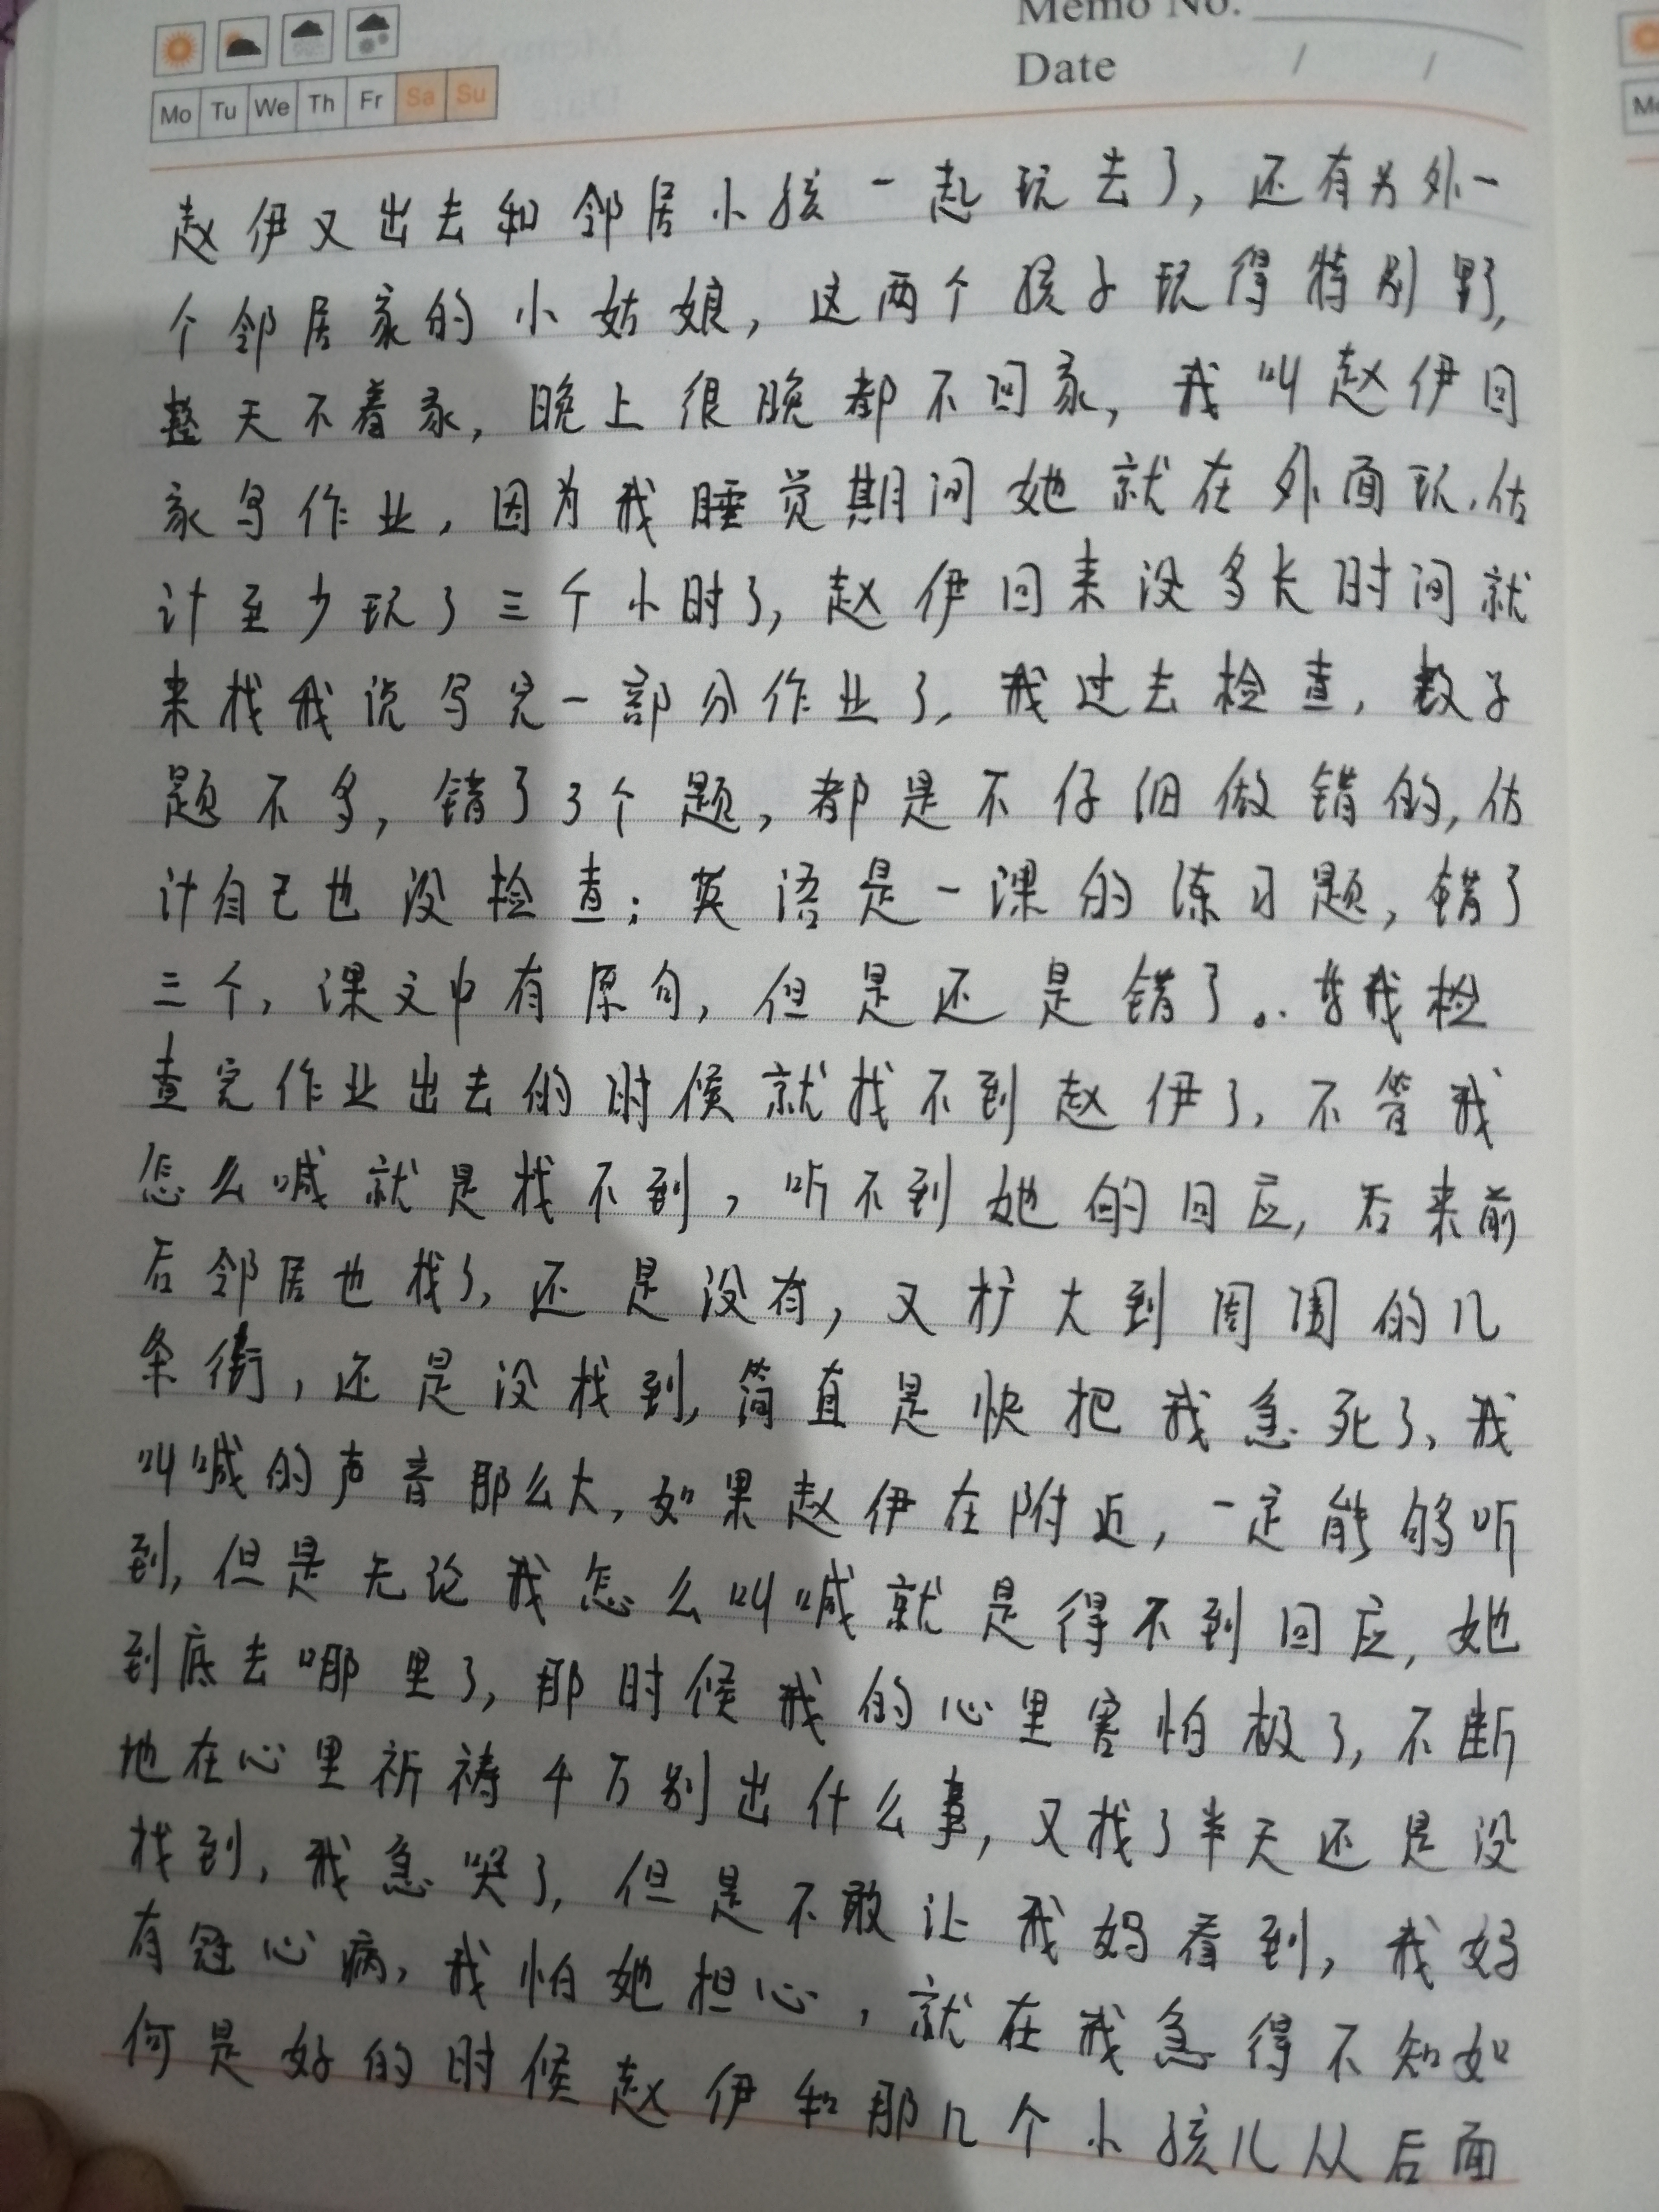 Memo No.
Date / /
Mo Tu We Th Fr Sa Su
赵伊又出去和邻居小孩一起玩去了，还有另外一
个邻居家的小姑娘，这两个孩子玩得特别野，
整天不着家，晚上很晚都不回家，我叫赵伊回
家写作业，因为我睡觉期间她就在外面玩，估
计至少玩了三个小时了，赵伊回来没多长时间就
来找我说写完一部分作业了，我过去检查，数学
题不多，错了3个题，都是不仔细做错的，估
计自己也没检查；英语是一课的练习题，错了
三个，课文中有原句，但是还是错了。我检
查完作业出去的时候就找不到赵伊了，不管我
怎么喊就是找不到，听不到她的回应，后来前
后邻居也找了，还是没有，又扩大到周围的几
条街，还是没找到，简直是快把我急死了，我
叫喊的声音那么大，如果赵伊在附近，一定能够听
到，但是无论我怎么叫喊就是得不到回应，她
到底去哪里了，那时候我的心里害怕极了，不断
地在心里祈祷千万别出什么事，又找了半天还是没
找到，我急哭了，但是不敢让我妈看到，我妈
有冠心病，我怕她担心，就在我急得不知如
何是好的时候赵伊和那几个小孩儿从后面